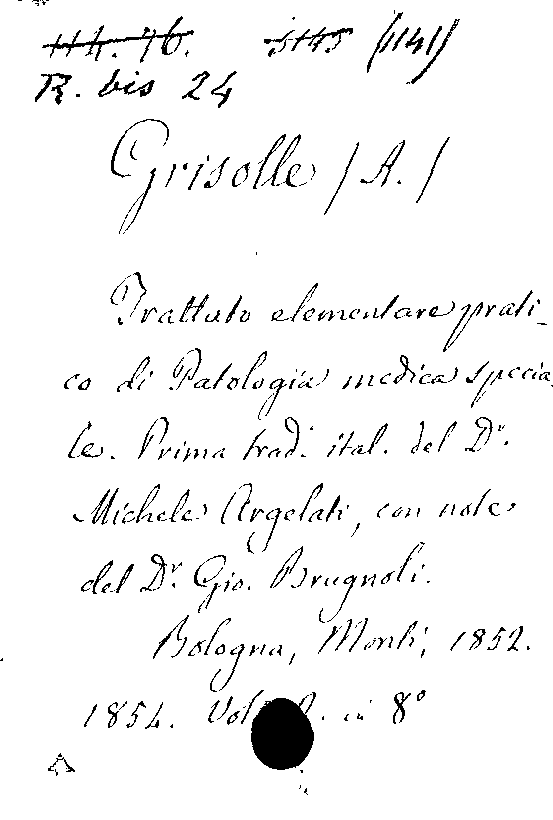 114. 76. 5145 (1141)
R. bis 24
Grisolle (A.)
Trattato elementare prati-
co di Patologia medica specia
le. Prima trad. ital. del Dr.
Michele Argelati, con note
del Dr. Gio. Brugnoli.
Bologna, Monti, 1852.
1854. Vol. in 8°